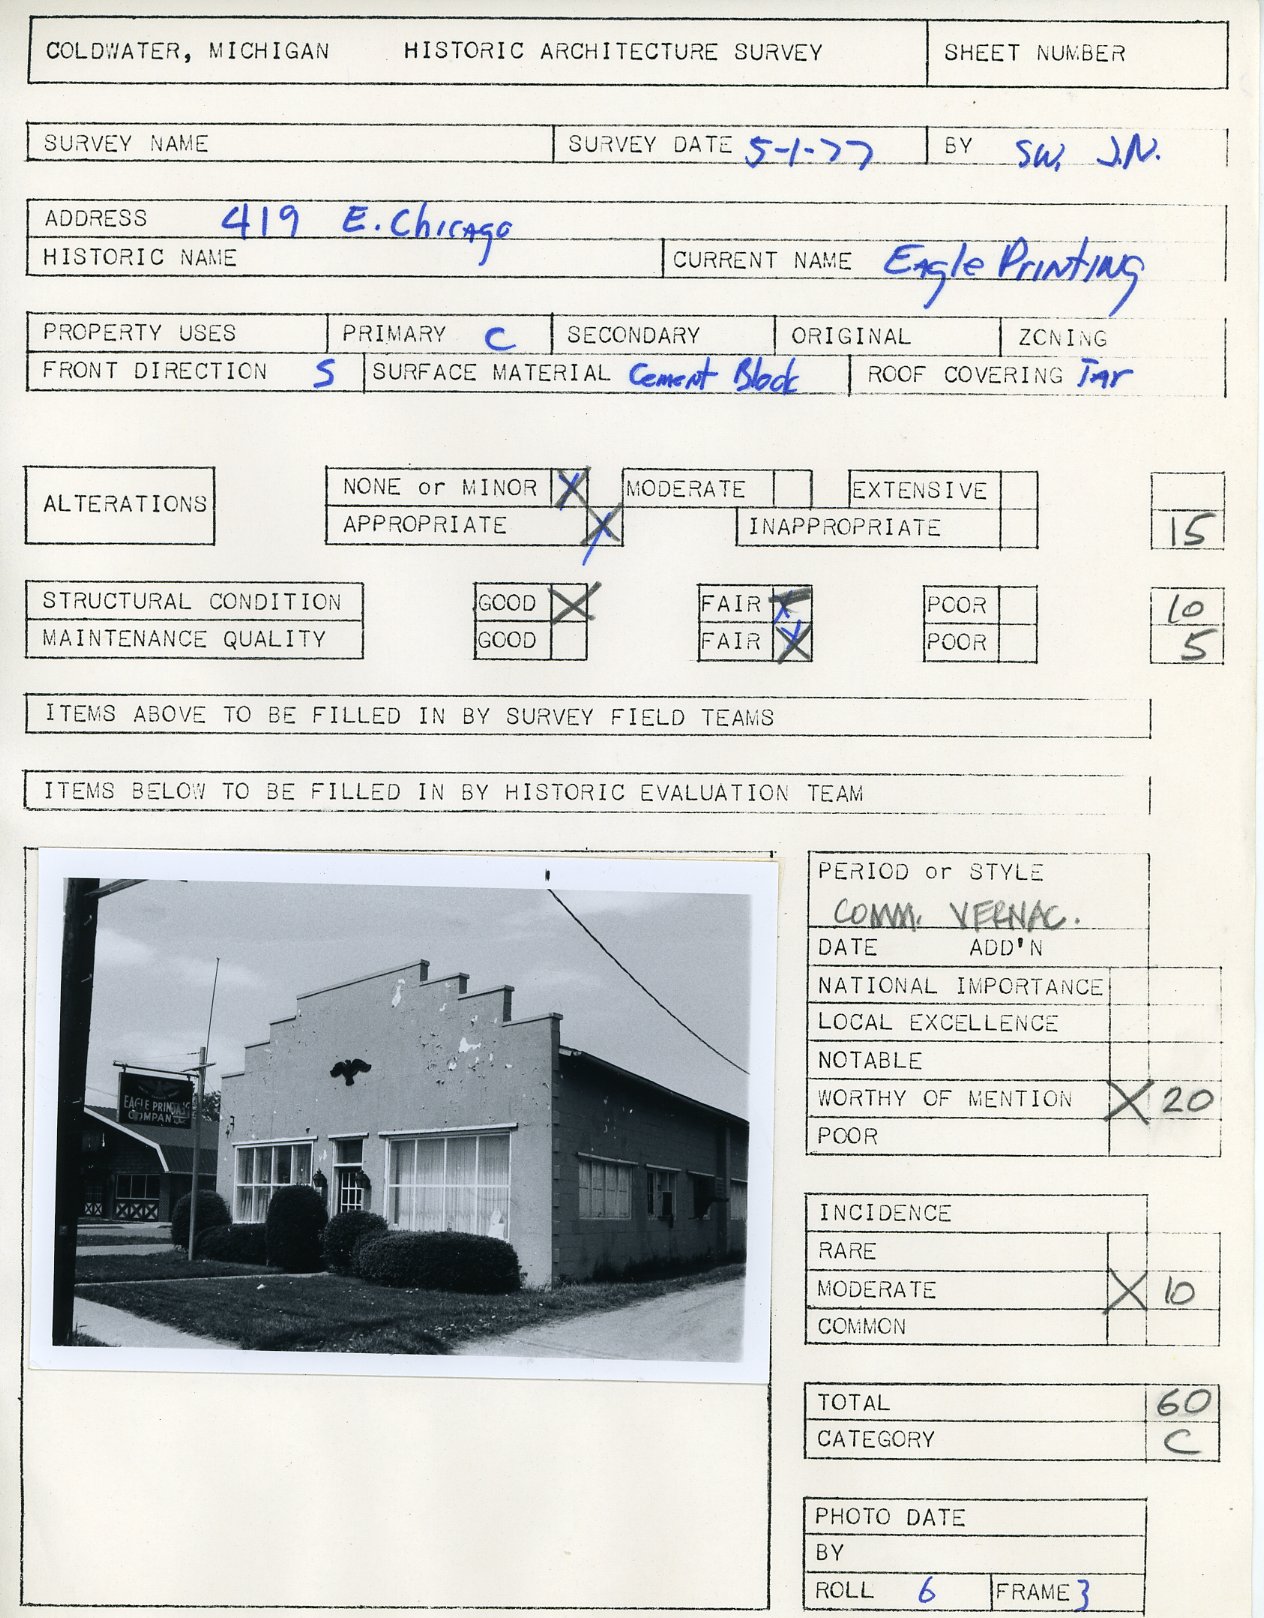 COLDWATER, MICHIGAN HISTORIC ARCHITECTURE SURVEY SHEET NUMBER
SURVEY NAME SURVEY DATE 5-1-77 BY SW. J.N.
ADDRESS 419 E. Chicago
HISTORIC NAME CURRENT NAME Eagle Printing
PROPERTY USES PRIMARY C SECONDARY ORIGINAL ZONING
FRONT DIRECTION S SURFACE MATERIAL Cement Block ROOF COVERING Tar
ALTERATIONS NONE or MINOR X MODERATE EXTENSIVE
APPROPRIATE X INAPPROPRIATE 15
STRUCTURAL CONDITION GOOD X FAIR X POOR 10
MAINTENANCE QUALITY GOOD FAIR X POOR 5
ITEMS ABOVE TO BE FILLED IN BY SURVEY FIELD TEAMS
ITEMS BELOW TO BE FILLED IN BY HISTORIC EVALUATION TEAM
EAGLE PRINTING
COMPANY
PERIOD or STYLE
COMM. VERNAC.
DATE ADD'N
NATIONAL IMPORTANCE
LOCAL EXCELLENCE
NOTABLE
WORTHY OF MENTION X 20
POOR
INCIDENCE
RARE
MODERATE X 10
COMMON
TOTAL 60
CATEGORY C
PHOTO DATE
BY
ROLL 6 FRAME 3